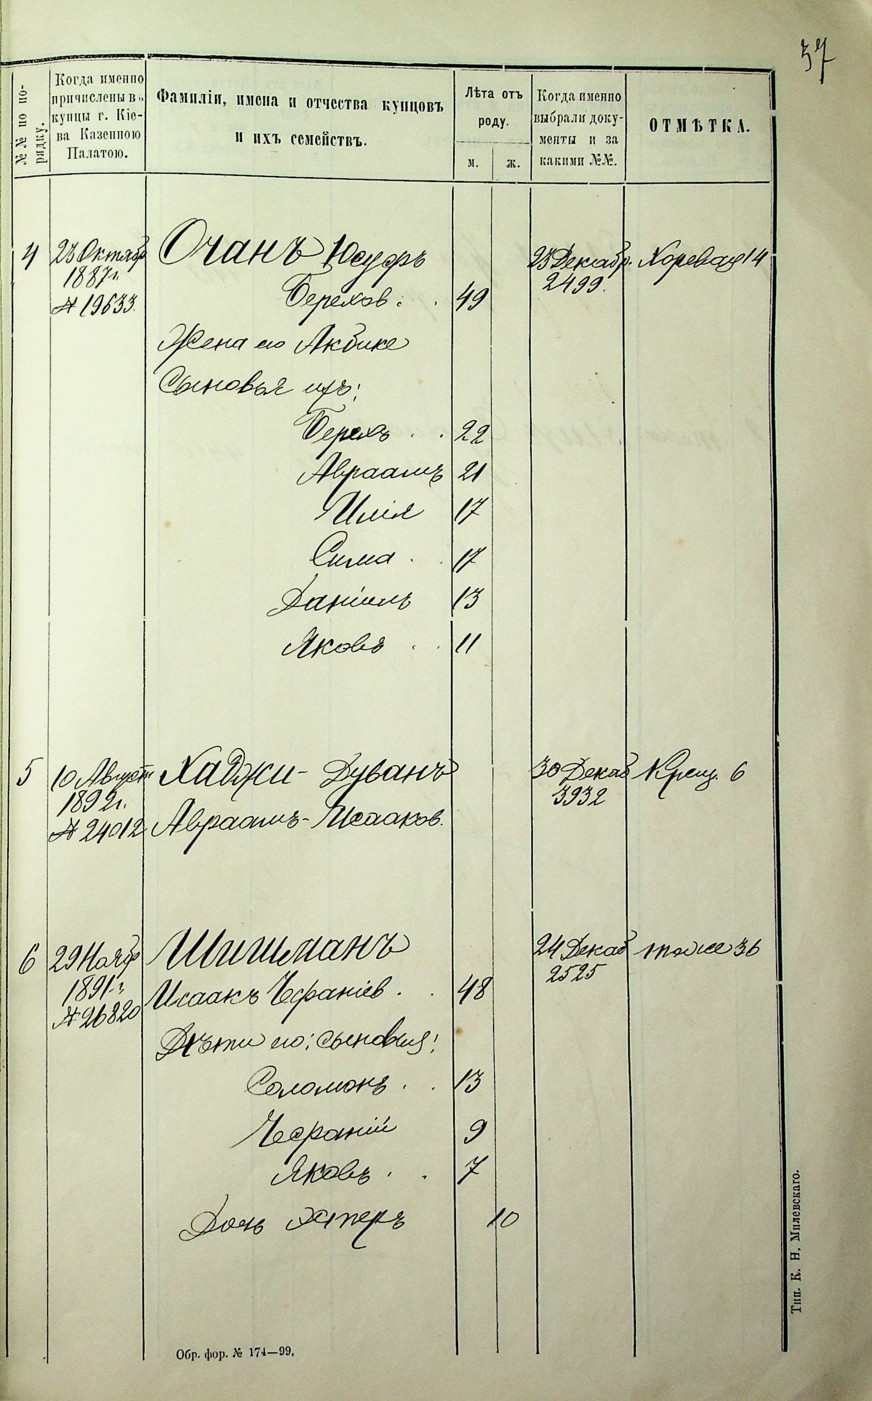 37
№№ по по-
рядку.
Когда именно
причислены въ
купцы г. Кіе-
ва Казенною
Палатою.
Фамиліи, имена и отчества купцовъ
и ихъ семействъ.
Лѣта отъ
роду.
м.
ж.
Когда именно
выбрали доку-
менты и за
какими №№.
ОТМѢТКА.
4
23 Октябр
1887 г.
№ 19633.
Очанъ Юсуфъ
Берехов. 49
23 Декабр.
2499.
Хоревая 14
Жена его Акбике
Сыновья ихъ:
Берехъ 22
Авраамъ 21
Илія 17
Сима 17
Даніилъ 13
Яковъ 11
5
10 Август
1892 г.
№ 24012
Хаджи-Дуванъ
Авраамъ-Исааков.
30 Декаб
3932
Крещ. 6
6
29 Нояб
1891 г.
№ 26820
Шишманъ
Исаакъ Чефаніев. 48
24 Декаб
2525
тоже 36
Дѣти его: сыновья:
Соломонъ 13
Чефаній 9
Яковъ 7
Дочь Эстеръ 10
Обр. фор. № 174—99.
Тип. К. Н. Милевскаго.